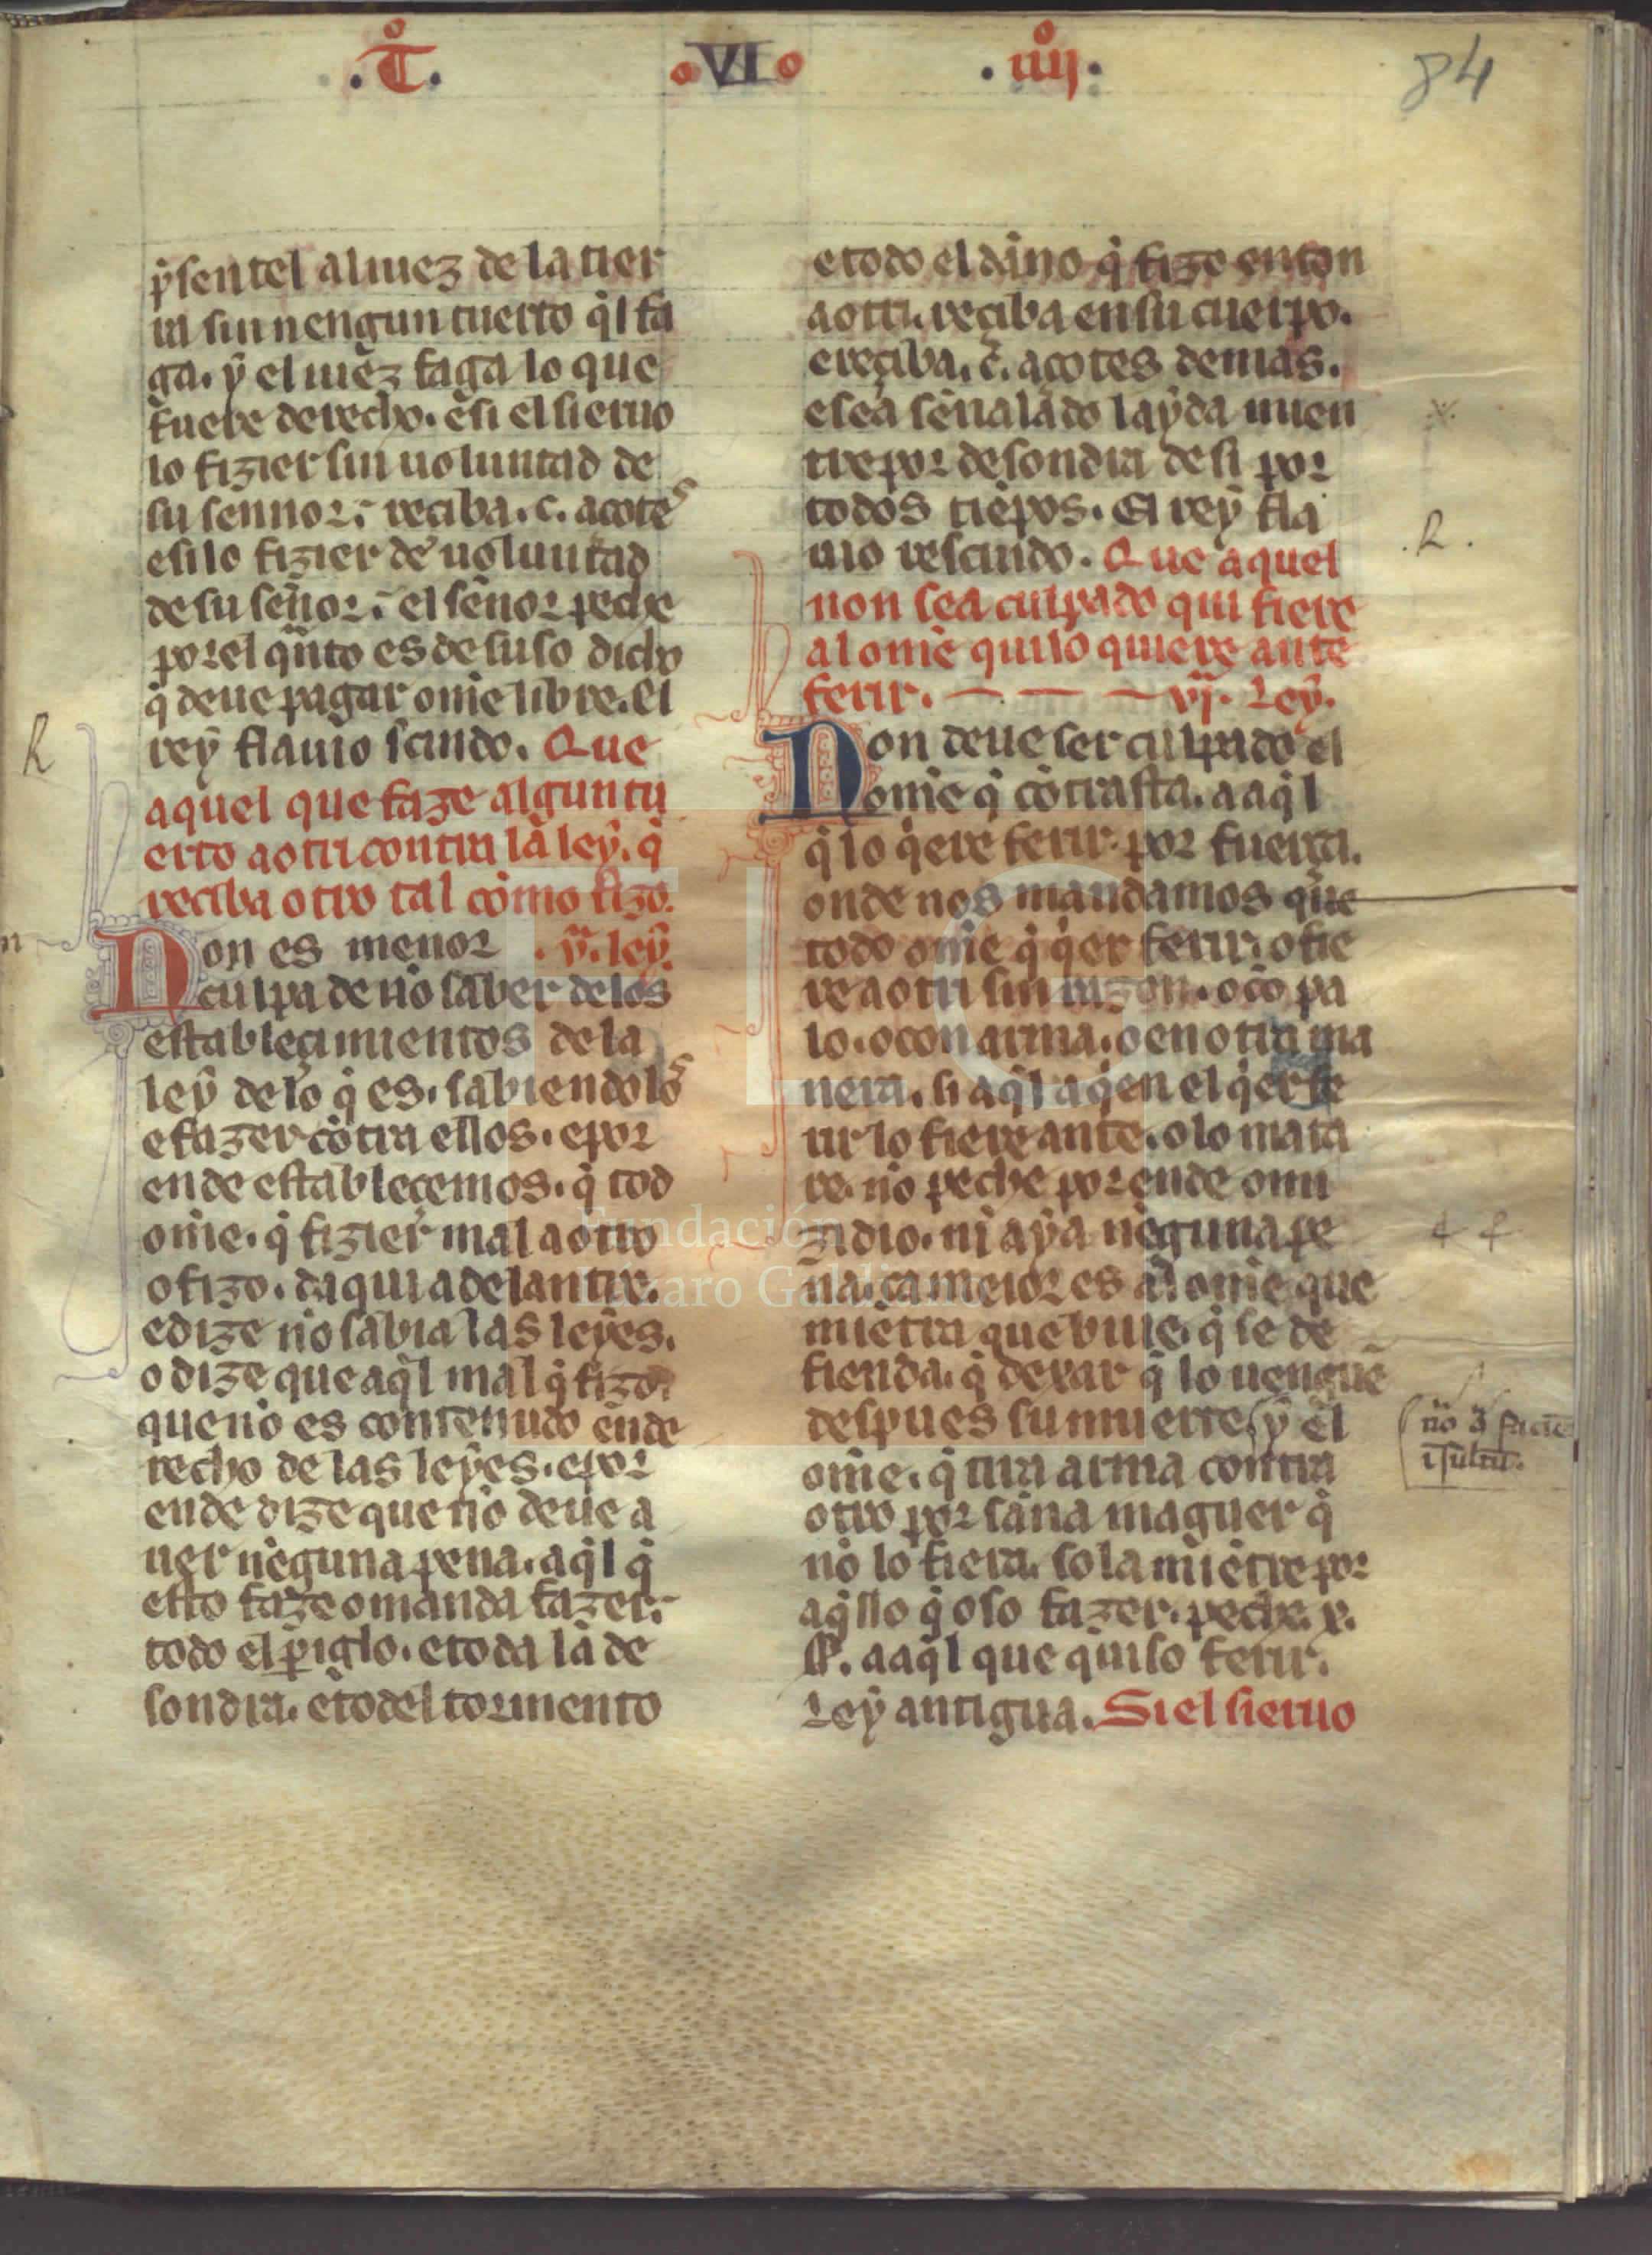 .T͛o.
oVIo
.iiijo.
84
p̃sentel al iuez de la tier
ra sin nengun tuerto q̃l fa
ga. ẏ el iuez faga lo que
fuere derecho. esi el sieruo
lo fizier sin uoluntad de
su sennor: reciba .c. açotes
esi lo fizier de uoluntad
de su señor: el señor peche
por el qñto es de suso dicho
q̃ deue pagar omẽ libre. El
reẏ flauio scindo. Que
aquel que faze algun tu
erto a otri contra la leẏ. q̃
reciba otro tal como fizo.
Non es menor .v̊. leẏ.
culpa de nõ saber de los
estableçimientos de la
leẏ de lo q̃ es. sabiendolos
e fazer cõtra ellos. epor
ende establecemos. q̃ tod
omẽ. q̃ fizier mal a otro
o fizo. daqui adelantre.
edize nõ sabia las leẏes.
o dize que aq̃l mal q̃ fizo.
que nõ es contenudo en de
recho de las leẏes. epor
ende dize que nõ deue a
uer nẽguna pena. aq̃l q̃
esto faze o manda fazer.
todo el ꝑiglo. etoda la de
sondra. etodel tormento
etodo el dãno q̃ fizo enton
a otri. reçiba en su cuerpo.
ereçiba .c. açotes demas.
esea sẽnalado laẏda mien
tre por desondra de si por
todos tiẽpos. El reẏ fla
uio rescindo. Que aquel
non sea culpado qui fiere
al omẽ qui lo quiere ante
ferir. — — — vj. Leẏ.
Non deue ser culpado el
omẽ q̃ cõtrasta. a aq̃l
q̃ lo q̃ere ferir. por fuerça.
onde nos mandamos que
todo omẽ q̃ q̃er ferir. o fie
re a otri sin razon. o cõ pa
lo. o con arma. o en otra ma
nera. si aq̃l a q̃en el q̃er fe
rir lo fiere ante. o lo mata
re. nõ peche por ende omi
zidio. nĩ aẏa nẽguna pe
na. ca meior es al omẽ que
miẽtra que biue. q̃ se de
fienda. q̃ dexar q̃ lo uengue
despues su muerte. ẏ el
omẽ. q̃ tira arma contra
otro por saña maguer q̃
nõ lo fiera. sola miẽtre por
aq̃llo q̃ oso fazer. peche .x.
ss. a aq̃l que quiso ferir.
Leẏ antigua. Si el sieruo
R
.R.
FLG
Fundación
Lázaro Galdiano